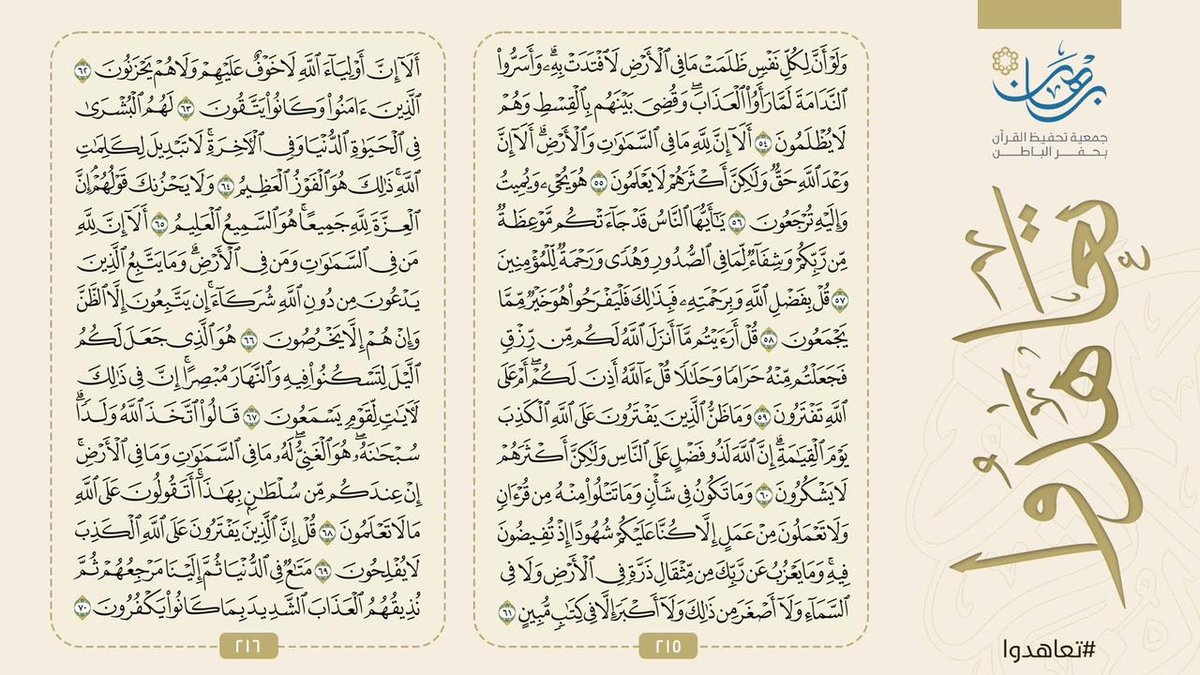 برهان
جمعية تحفيظ القرآن
بحفر الباطن
تعاهدوا
#تعاهدوا
وَلَوْ أَنَّ لِكُلِّ نَفْسٍ ظَلَمَتْ مَا فِي ٱلْأَرْضِ لَٱفْتَدَتْ بِهِۦۗ وَأَسَرُّوا۟
ٱلنَّدَامَةَ لَمَّا رَأَوُا۟ ٱلْعَذَابَۖ وَقُضِيَ بَيْنَهُم بِٱلْقِسْطِ وَهُمْ
لَا يُظْلَمُونَ ٥٤ أَلَآ إِنَّ لِلَّهِ مَا فِي ٱلسَّمَٰوَٰتِ وَٱلْأَرْضِۗ أَلَآ إِنَّ
وَعْدَ ٱللَّهِ حَقٌّ وَلَٰكِنَّ أَكْثَرَهُمْ لَا يَعْلَمُونَ ٥٥ هُوَ يُحْيِۦ وَيُمِيتُ
وَإِلَيْهِ تُرْجَعُونَ ٥٦ يَٰٓأَيُّهَا ٱلنَّاسُ قَدْ جَآءَتْكُم مَّوْعِظَةٌ
مِّن رَّبِّكُمْ وَشِفَآءٌ لِّمَا فِي ٱلصُّدُورِ وَهُدًى وَرَحْمَةٌ لِّلْمُؤْمِنِينَ
٥٧ قُلْ بِفَضْلِ ٱللَّهِ وَبِرَحْمَتِهِۦ فَبِذَٰلِكَ فَلْيَفْرَحُوا۟ هُوَ خَيْرٌ مِّمَّا
يَجْمَعُونَ ٥٨ قُلْ أَرَءَيْتُم مَّآ أَنزَلَ ٱللَّهُ لَكُم مِّن رِّزْقٍ
فَجَعَلْتُم مِّنْهُ حَرَامًا وَحَلَٰلًا قُلْ ءَآللَّهُ أَذِنَ لَكُمْۖ أَمْ عَلَى
ٱللَّهِ تَفْتَرُونَ ٥٩ وَمَا ظَنُّ ٱلَّذِينَ يَفْتَرُونَ عَلَى ٱللَّهِ ٱلْكَذِبَ
يَوْمَ ٱلْقِيَٰمَةِۗ إِنَّ ٱللَّهَ لَذُو فَضْلٍ عَلَى ٱلنَّاسِ وَلَٰكِنَّ أَكْثَرَهُمْ
لَا يَشْكُرُونَ ٦٠ وَمَا تَكُونُ فِي شَأْنٍ وَمَا تَتْلُوا۟ مِنْهُ مِن قُرْءَانٍ
وَلَا تَعْمَلُونَ مِنْ عَمَلٍ إِلَّا كُنَّا عَلَيْكُمْ شُهُودًا إِذْ تُفِيضُونَ
فِيهِۚ وَمَا يَعْزُبُ عَن رَّبِّكَ مِن مِّثْقَالِ ذَرَّةٍ فِي ٱلْأَرْضِ وَلَا فِي
ٱلسَّمَآءِ وَلَآ أَصْغَرَ مِن ذَٰلِكَ وَلَآ أَكْبَرَ إِلَّا فِي كِتَٰبٍ مُّبِينٍ ٦١
٢١٥
أَلَآ إِنَّ أَوْلِيَآءَ ٱللَّهِ لَا خَوْفٌ عَلَيْهِمْ وَلَا هُمْ يَحْزَنُونَ ٦٢
ٱلَّذِينَ ءَامَنُوا۟ وَكَانُوا۟ يَتَّقُونَ ٦٣ لَهُمُ ٱلْبُشْرَىٰ
فِي ٱلْحَيَوٰةِ ٱلدُّنْيَا وَفِي ٱلْءَاخِرَةِۚ لَا تَبْدِيلَ لِكَلِمَٰتِ
ٱللَّهِۚ ذَٰلِكَ هُوَ ٱلْفَوْزُ ٱلْعَظِيمُ ٦٤ وَلَا يَحْزُنكَ قَوْلُهُمْۘ إِنَّ
ٱلْعِزَّةَ لِلَّهِ جَمِيعًاۚ هُوَ ٱلسَّمِيعُ ٱلْعَلِيمُ ٦٥ أَلَآ إِنَّ لِلَّهِ
مَن فِي ٱلسَّمَٰوَٰتِ وَمَن فِي ٱلْأَرْضِۗ وَمَا يَتَّبِعُ ٱلَّذِينَ
يَدْعُونَ مِن دُونِ ٱللَّهِ شُرَكَآءَۚ إِن يَتَّبِعُونَ إِلَّا ٱلظَّنَّ
وَإِنْ هُمْ إِلَّا يَخْرُصُونَ ٦٦ هُوَ ٱلَّذِي جَعَلَ لَكُمُ
ٱلَّيْلَ لِتَسْكُنُوا۟ فِيهِ وَٱلنَّهَارَ مُبْصِرًاۚ إِنَّ فِي ذَٰلِكَ
لَءَايَٰتٍ لِّقَوْمٍ يَسْمَعُونَ ٦٧ قَالُوا۟ ٱتَّخَذَ ٱللَّهُ وَلَدًاۗ
سُبْحَٰنَهُۥۖ هُوَ ٱلْغَنِيُّۖ لَهُۥ مَا فِي ٱلسَّمَٰوَٰتِ وَمَا فِي ٱلْأَرْضِۚ
إِنْ عِندَكُم مِّن سُلْطَٰنٍۭ بِهَٰذَآۚ أَتَقُولُونَ عَلَى ٱللَّهِ
مَا لَا تَعْلَمُونَ ٦٨ قُلْ إِنَّ ٱلَّذِينَ يَفْتَرُونَ عَلَى ٱللَّهِ ٱلْكَذِبَ
لَا يُفْلِحُونَ ٦٩ مَتَٰعٌ فِي ٱلدُّنْيَا ثُمَّ إِلَيْنَا مَرْجِعُهُمْ ثُمَّ
نُذِيقُهُمُ ٱلْعَذَابَ ٱلشَّدِيدَ بِمَا كَانُوا۟ يَكْفُرُونَ ٧٠
٢١٦